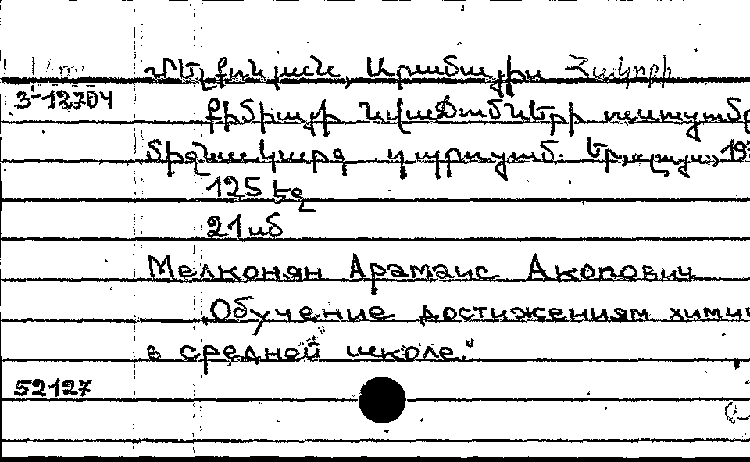 Մելքոնյան, Արամայիս Հակոբի
3-12704
Քիմիայի նվաճումների ուսուցումը
միջնակարգ դպրոցում. Եր., «Լույս», 19
125 էջ
21 սմ
Мелконян Арамаис Акопович
„Обучение достижениям химии
в средней школе."
52127